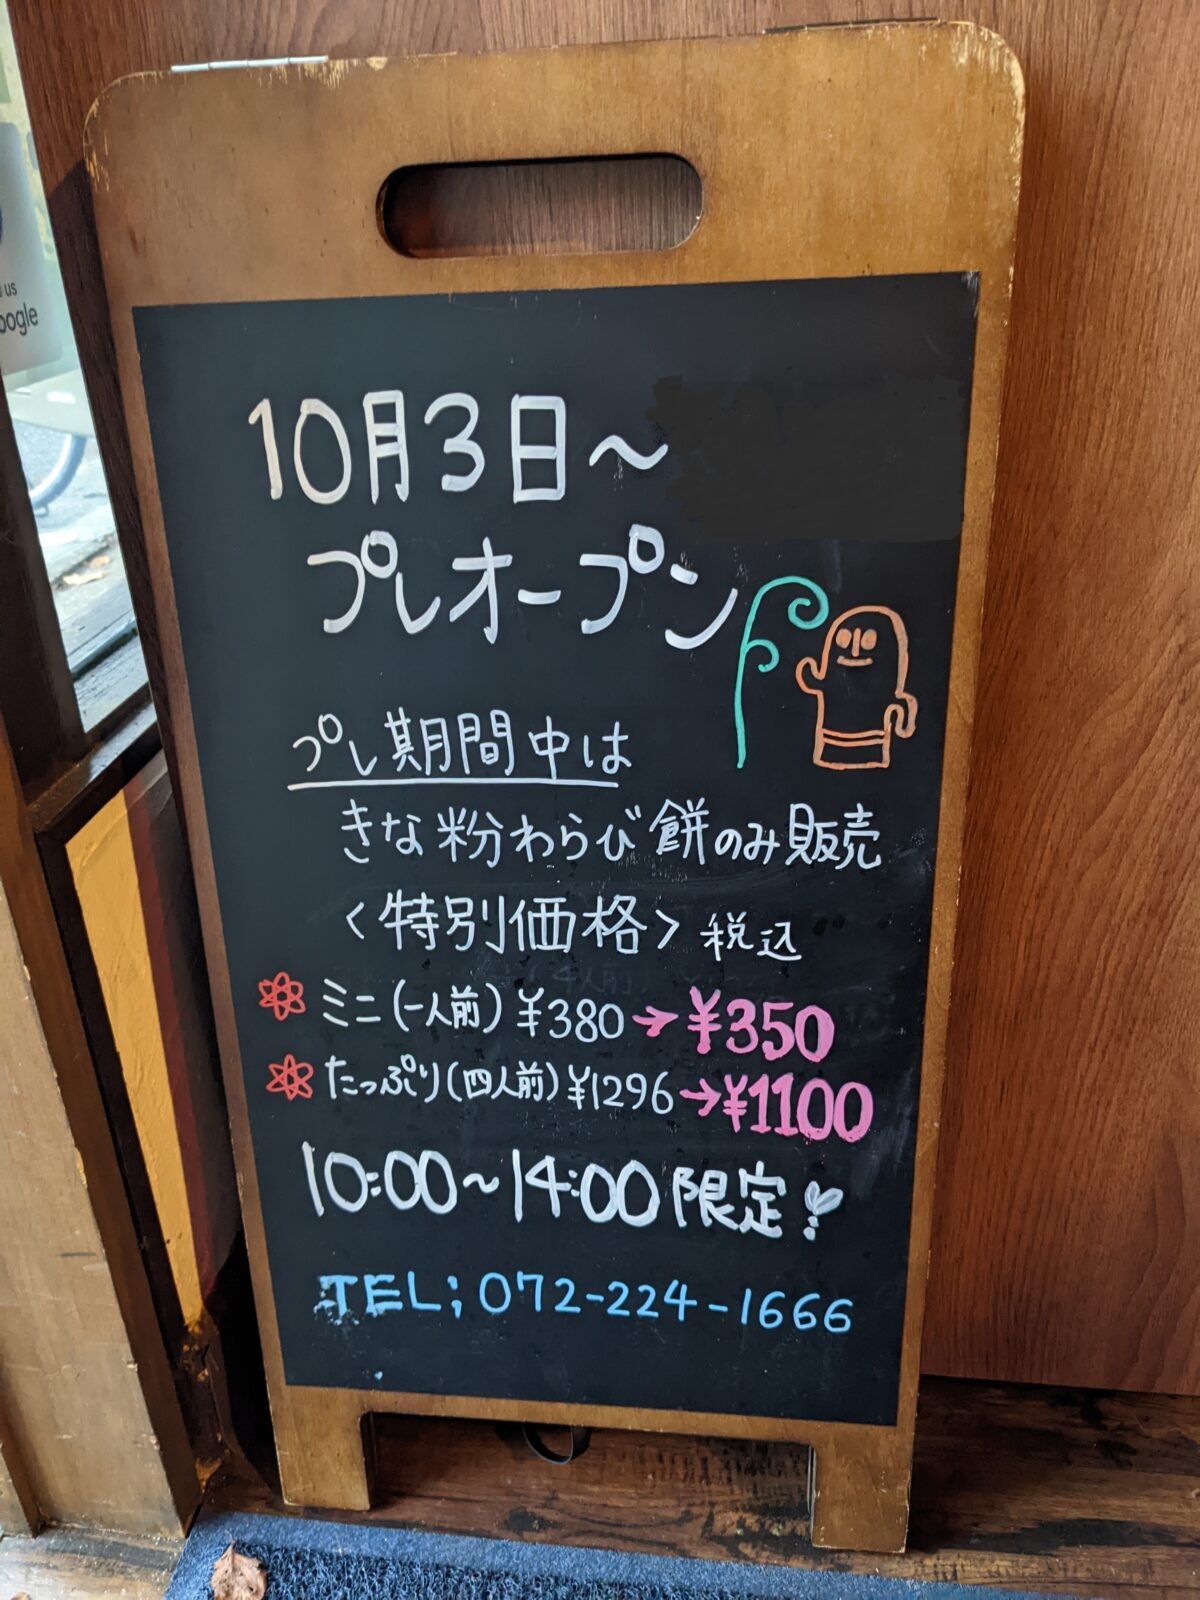 10月3日〜
プレオープン
プレ期間中は
きな粉わらび餅のみ販売
〈特別価格〉税込
ミニ(一人前)¥380→¥350
たっぷり(四人前)¥1296→¥1100
10:00〜14:00限定!
TEL;072-224-1666
us
oogle